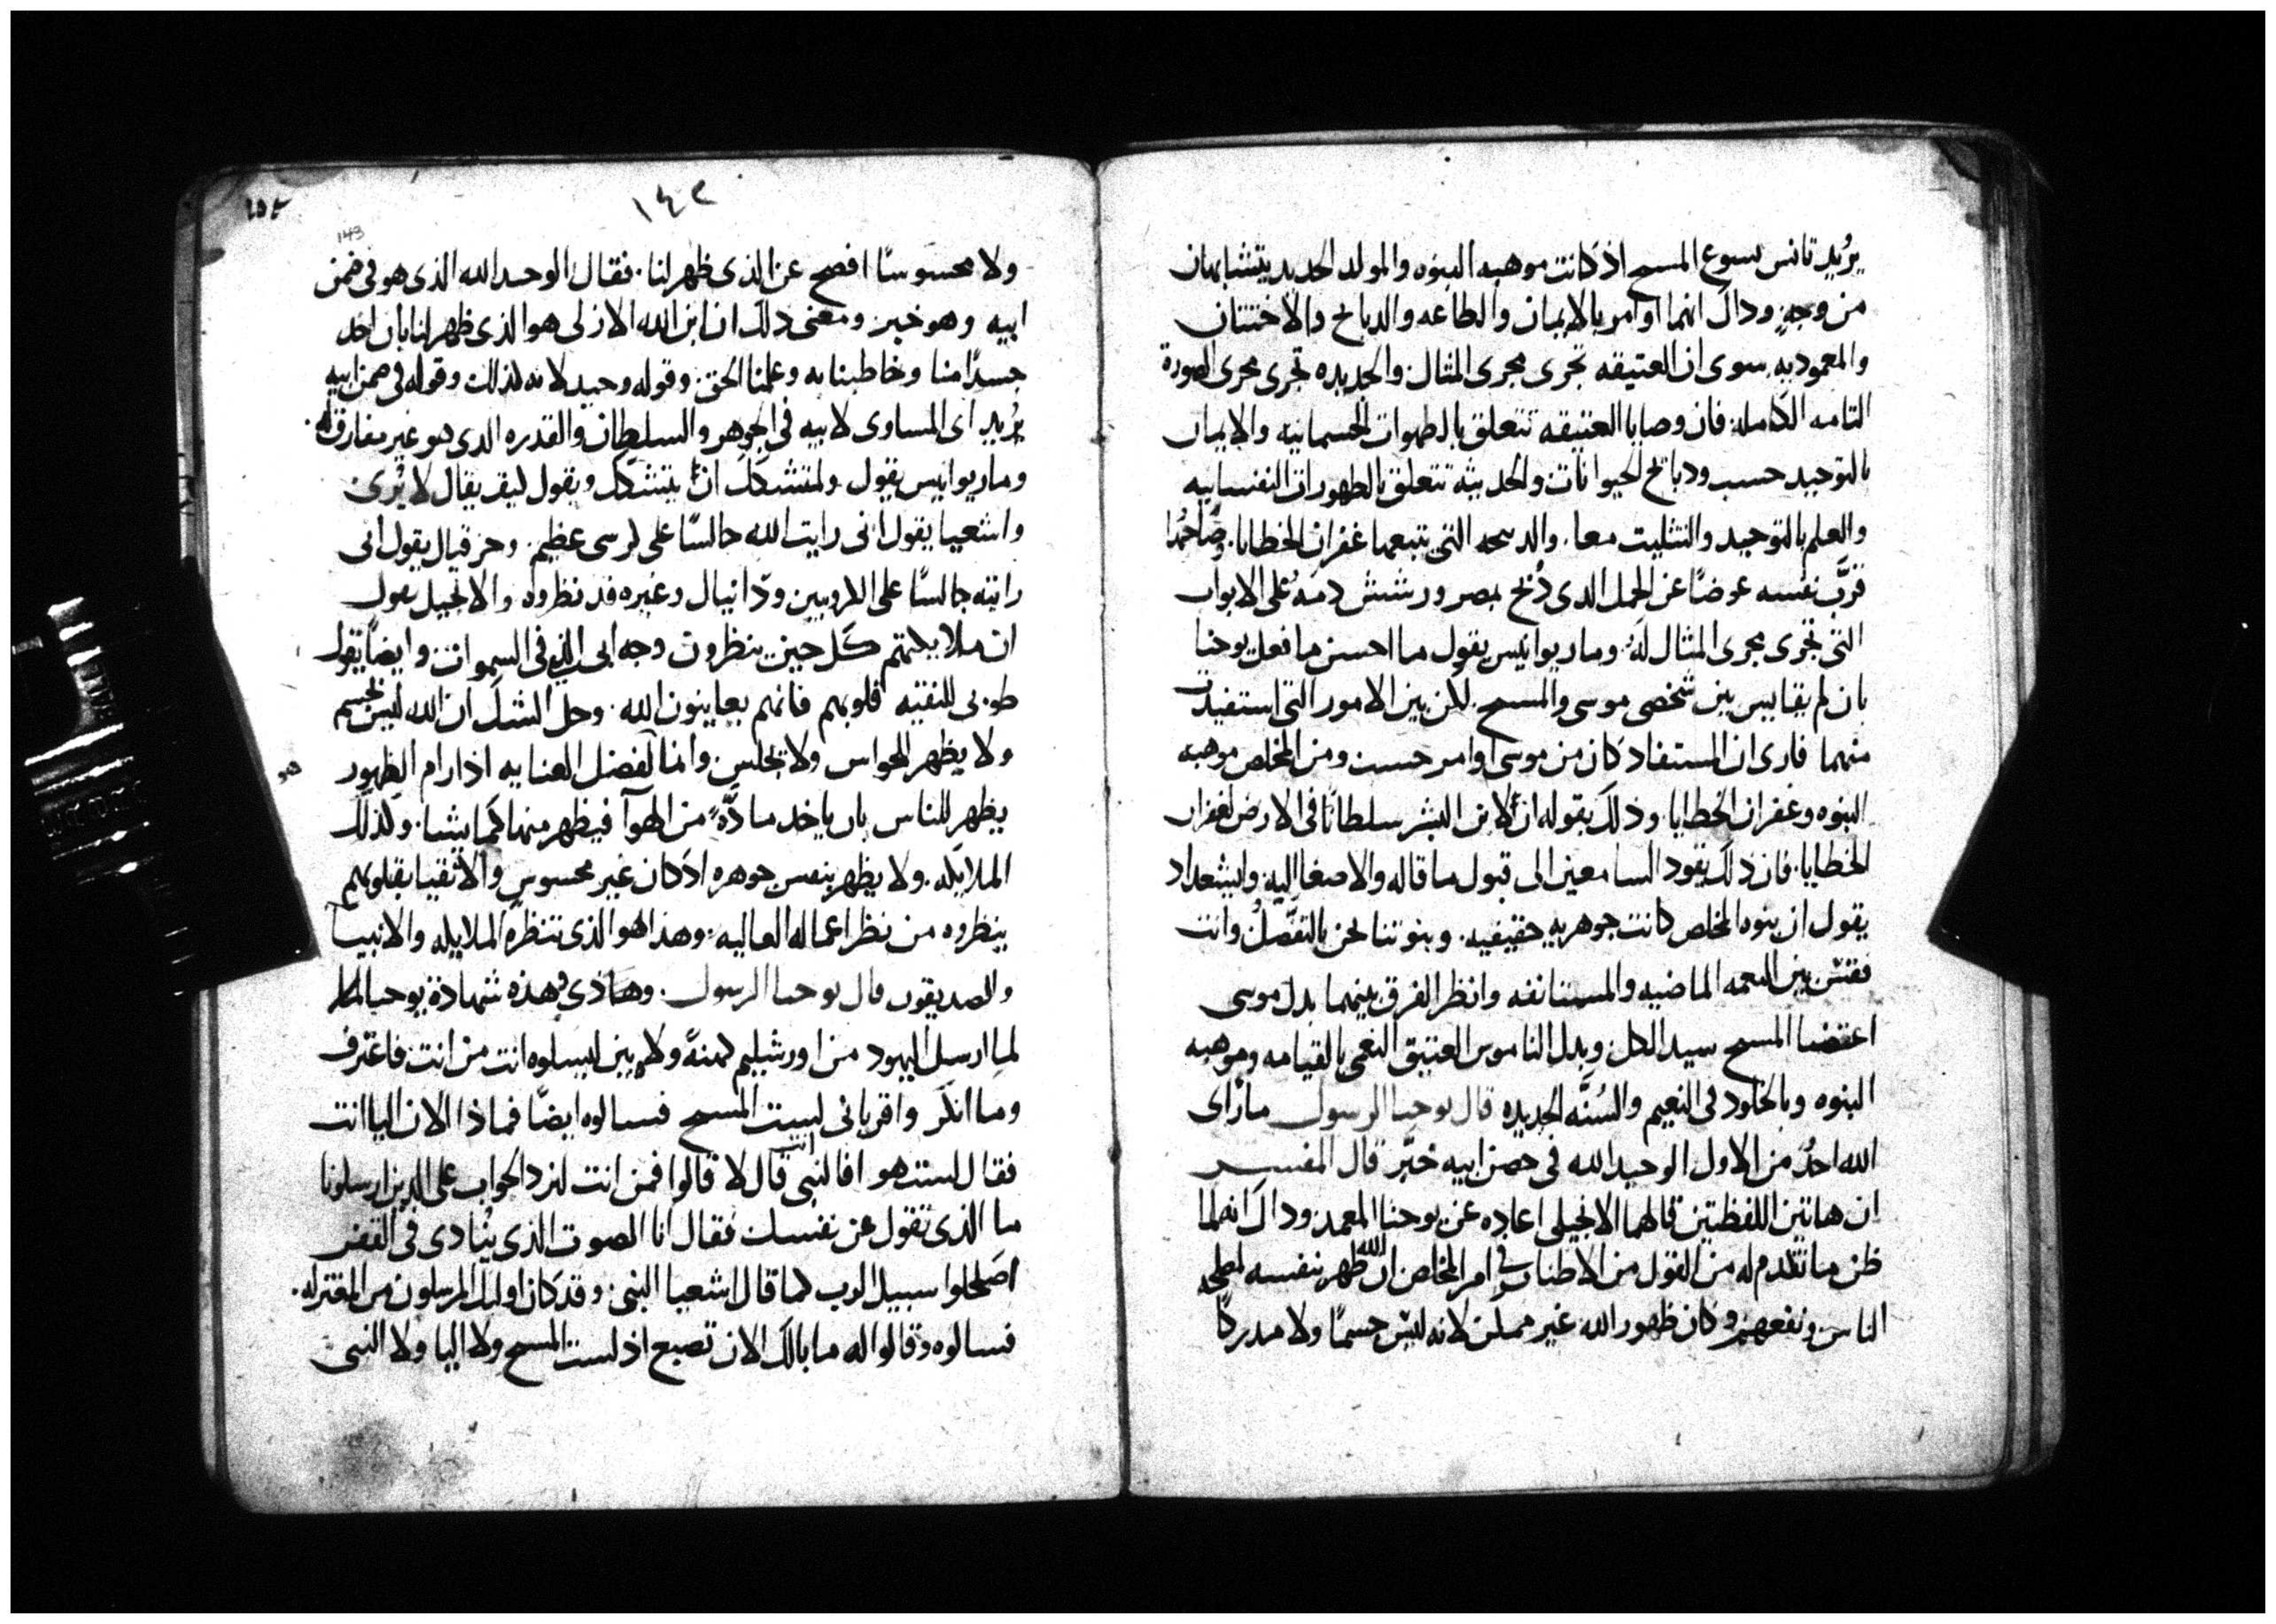 يريد تانس يسوع المسيح اذ كانت موهبه البنوه والمولد الجديد يتشابهان
من وجهٍ وداك انهما اوامر بالايمان والطاعه والدبايح والاختتان
والمعموديه سوى ان العتيقه تجرى مجرى المثال والجديده تجرى مجرى الصورة
التامه الكامله فان وصايا العتيقه تتعلق بالطهوات الجسمانيه والايمان
بالتوحيد حسب ودبايح الحيوانات والحديثه تتعلق بالطهورات النفسانيه
والعلم بالتوحيد والتثليت معا والدبيحه التى تتبعها غفران الخطايا وصاحبها
قرَّب نفسه عوضًا عن الحمل الدى دُبح بمصر ورشش دمهُ على الابواب
التى تجرى مجرى المثال لهُ وماريوانيس يقول ما احسن ما فعل يوحنا
بان لم يقايس بين شخصى موسى والمسيح لكن بين الامور التى استفيدت
منهما فارى ان المستفاد كان من موسى اوامر حسب ومن المخلص موهبه
البنوه وغفران الخطايا وذلك بقوله ان لابن البشر سلطانًا فى الارض لغفران
الخطايا فان ذلك يقود السامعين الى قبول ما قاله والاصغا اليه وايشعداد
يقول ان بنوه المخلص كانت جوهريه حقيقيه وبنوتنا نحن بالتفضل وانت
ففتش بين النعمه الماضيه والمستانفه وانظر الفرق بينهما بدل موسى
اعتضنا المسيح سيد الكل وبدل الناموس العتيق النعمى بالقيامه وموهبه
البنوه وبالخلود فى النعيم والسُنَّه الجديده قال يوحنا الرسول ما رآى
الله احدُ من الاول الوحيد الله فى حضن ابيه خبَّر قال المفسر
ان هاتين اللفظتين قالهما الانجيلى اعاده عن يوحنا المعمد وداك انه لما
ظن ما تقدم له من القول من الاطناب فى امر المخلص ان الله ظهر بنفسه لمصلحه
الناس ونفعهم وكان ظهور الله غير ممكن لانه ليس جسمًا ولا مدركًا
١٤٢
143
ولا محسوسًا افصح عن الذى ظهر لنا فقال الوحيد الله الذى هو فى ضمن
ابيه وهو خبر ومعنى دلك ان ابن الله الازلى هو الذى ظهر لنا بان اخد
جسدًا منا وخاطبنا به وعلمنا الحق وقوله وحيد لانه لذلك وقوله فى ضمن ابيه
يُريد اى المساوى لابيه فى الجوهر والسلطان والقدره الدى هو غير مفارق له
وماريوانيس يقول ولمتشكك ان يتشكك ويقول كيف يقال لا يُرى
واشعيا يقول انى رايت الله جالسًا على كرسى عظيم وحزقيال يقول انى
رايته جالسًا على الكروبيين ودانيال وغيره قد نظروه والانجيل يقول
ان ملايكتهم كل حين ينظرون وجه ابى الذى فى السموات وايضًا يقول
طوبى للنقيه قلوبهم فانهم يعاينون الله وحل الشك ان الله ليس بجسم
ولا يظهر للحواس ولا يجلس وانما لفضل العنايه اذا رام الظهور
يظهر للناس بان ياخد مادَّةً من الهوآ فيظهر منها كما يشا وكذلك
الملايكه ولا يظهر بنفس جوهره اذ كان غير محسوس والاتقيا بقلوبهم
ينظروه من نظر اعماله العاليه وهذا هو الذى تنظره الملايكه والانبيا
والصديقون قال يوحنا الرسول وهاذى هذه شهادة يوحنا
لما ارسل اليهود من اورشليم كهنةً ولاويين ليسلوه انت من انت فاعترف
وما انكر واقر بانى لست المسيح فسالوه ايضًا فماذا الان اليا انت
فقال لست هو افالنبى انت قال لا قالوا فمن انت لنرد الجواب على الدين ارسلونا
ما الذى تقول عن نفسك فقال انا الصوت الذى يُنادى فى القفر
اصلحوا سبيل الرب كما قال اشعيا النبى وقد كان اوليك المرسلون من المعتزله
فسالوه وقالوا له ما بالك الان تصبع اذ لست المسيح ولا اليا ولا النبى